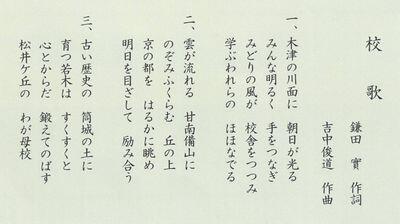 校歌
鎌田 實 作詞
吉中俊道 作曲
一、木津の川面に 朝日が光る
みんな明るく 手をつなぎ
みどりの風が 校舎をつつみ
学ぶわれらの ほほなでる
二、雲が流れる 甘南備山に
のぞみふくらむ 丘の上
京の都を はるかに眺め
明日を目ざして 励み合う
三、古い歴史の 筒城の土に
育つ若木は すくすくと
心とからだ 鍛えてのばす
松井ケ丘の わが母校